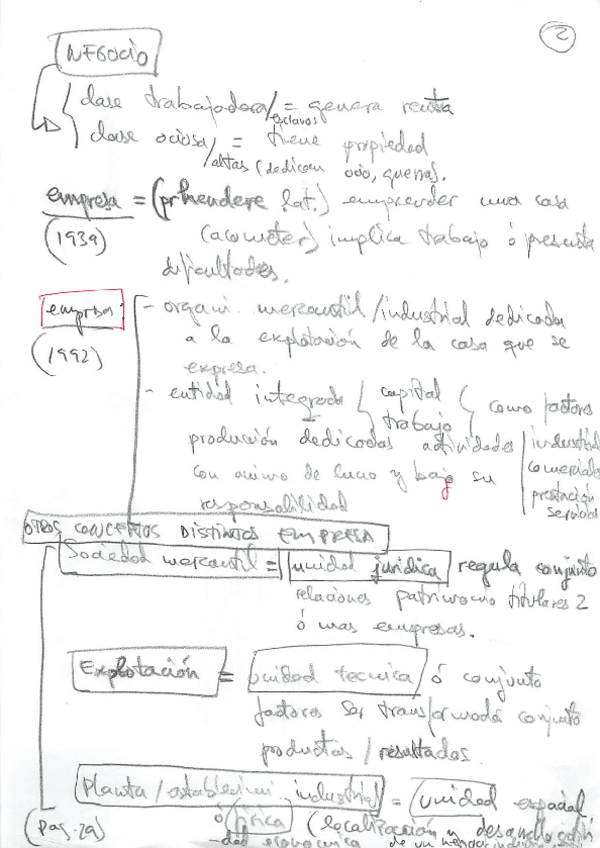 2
NEGOCIO
clase trabajadora/esclavos = genera renta
clase ociosa/altas (dedican ocio, guerras. = tiene propiedad
empresa = (prhendere lat.) emprender una casa
(1939) (acometer) implica trabajo ó presenta
dificultades.
empresa: - organi. mercantil/industrial dedicada
(1992) a la explotación de la casa que se
expresa.
- entidad integrada capital trabajo como factores
producción dedicadas actividades industrial comerciales prestación servicios
con animo de lucro y bajo su
responsabilidad
OTROS CONCEPTOS DISTINTOS EMPRESA
Sociedad mercantil = unidad juridica regula conjunto
relaciones patrimonio titulares 2
ó mas empresas.
Explotación = unidad tecnica / ó conjunto
factores ser transformada conjunto
productos / resultados.
Planta / establecimi. industrial = unidad espacial
ó física (localización y desarrollo
(pag. 29) - dad economica de un